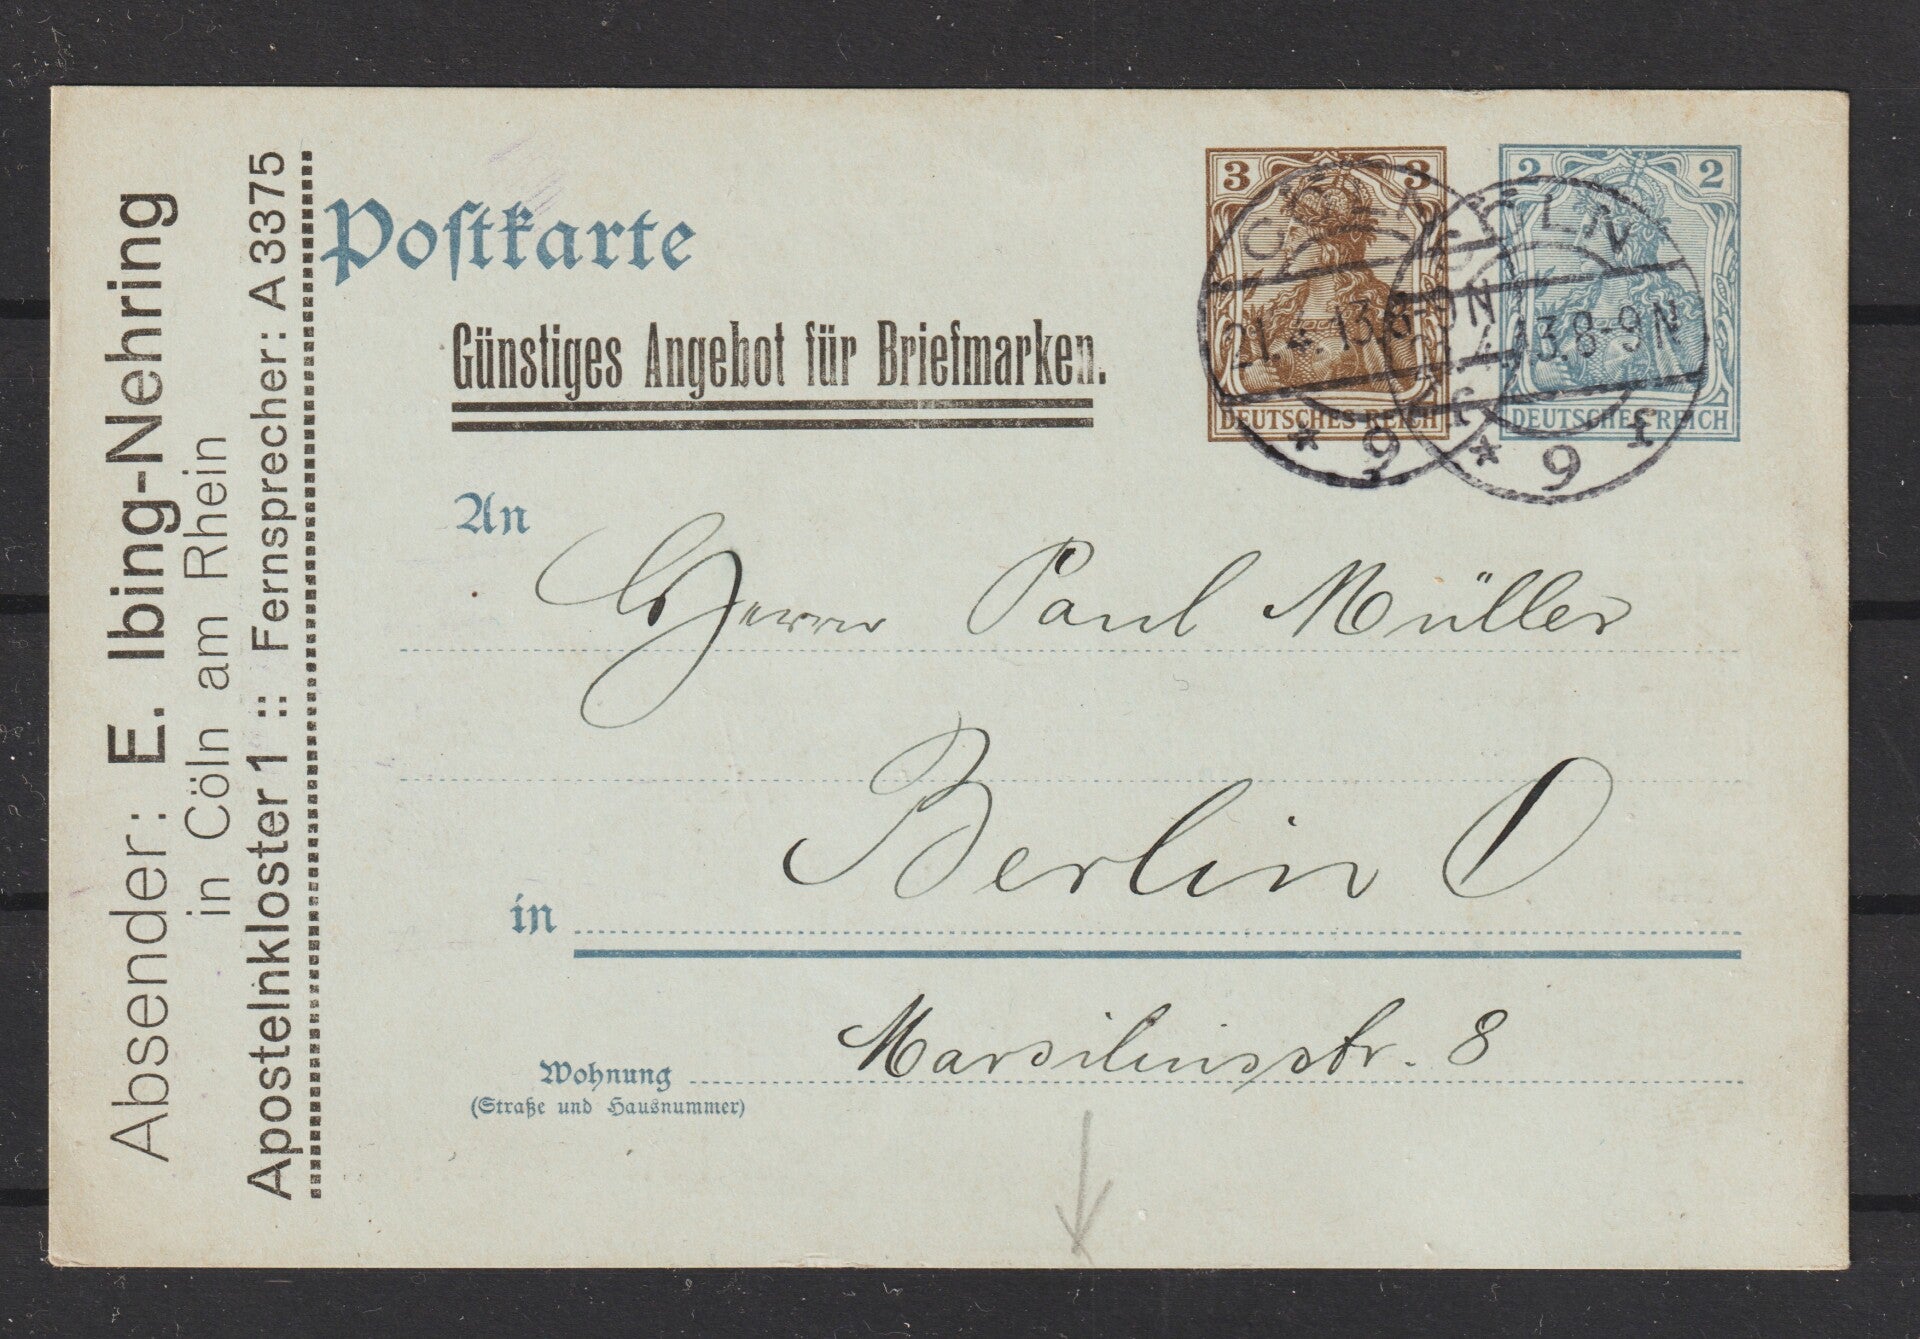 Absender: E. Ibing-Nehring
in Cöln am Rhein
Apostelnkloster 1 :: Fernsprecher: A 3375
Postkarte
Günstiges Angebot für Briefmarken.
3 3
DEUTSCHES REICH
2 2
DEUTSCHES REICH
CÖLN
21.4.13.8-9N
* 9 f
CÖLN
21.4.13.8-9N
* 9 f
An
Herrn Paul Müller
Berlin O
in
Marsiliusstr. 8
Wohnung
(Straße und Hausnummer)